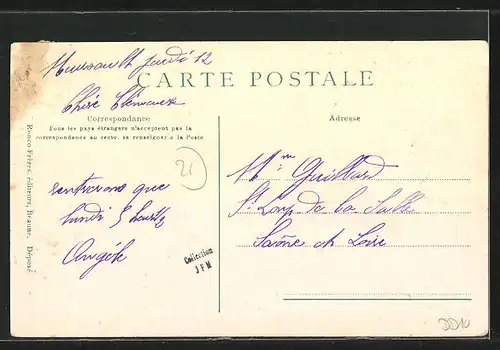 Meursault jeudi 12
CARTE POSTALE
Chère
Correspondance
Tous les pays étrangers n'acceptent pas la
correspondance au recto, se renseigner à la Poste
Adresse
21
rentrerons que
lundi 5 heures
Angèle
Mme Guillard
St Loup de la Salle
Saône et Loire
Collection
JFM
Ronco Frères, éditeurs, Beaune. Déposé
DD10